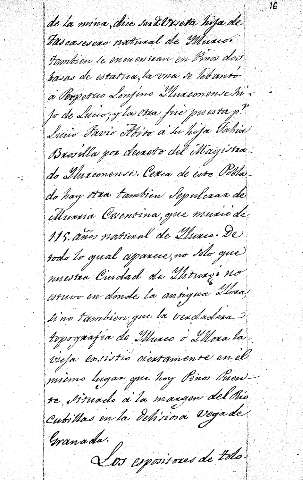 16
de la mina, dice
hija de
natural de Ylurco.
tambien se encuentran en Pinos dos
basas de estatua, la una se lebantó
a Porpereo Longino Ylurconense hi-
jo de Lucio; y la otra fué puesta pr.
Lucio Favio Abito á su hija Fabia
Brasilla por decreto del Magistra-
do Ylurconense. Cerca de este Pobla-
do hay otra tambien Sepulcrar de
Murria Cosentina, que murio de
115. años natural de Ylurco. De
todo lo qual aparece, no solo, que
nuestra Ciudad de Yliturgi no
estuvo en donde la antigua Ylora
si no tambien que la verdadera
topografia de Ylurco ó Ylora la
vieja consistio ciertamente en el
mismo lugar que hoy Pinos Puen-
te, situado á la margen del Rio
Cubillas en la deliciosa vega de
Granada.
Los espositores de tolo-